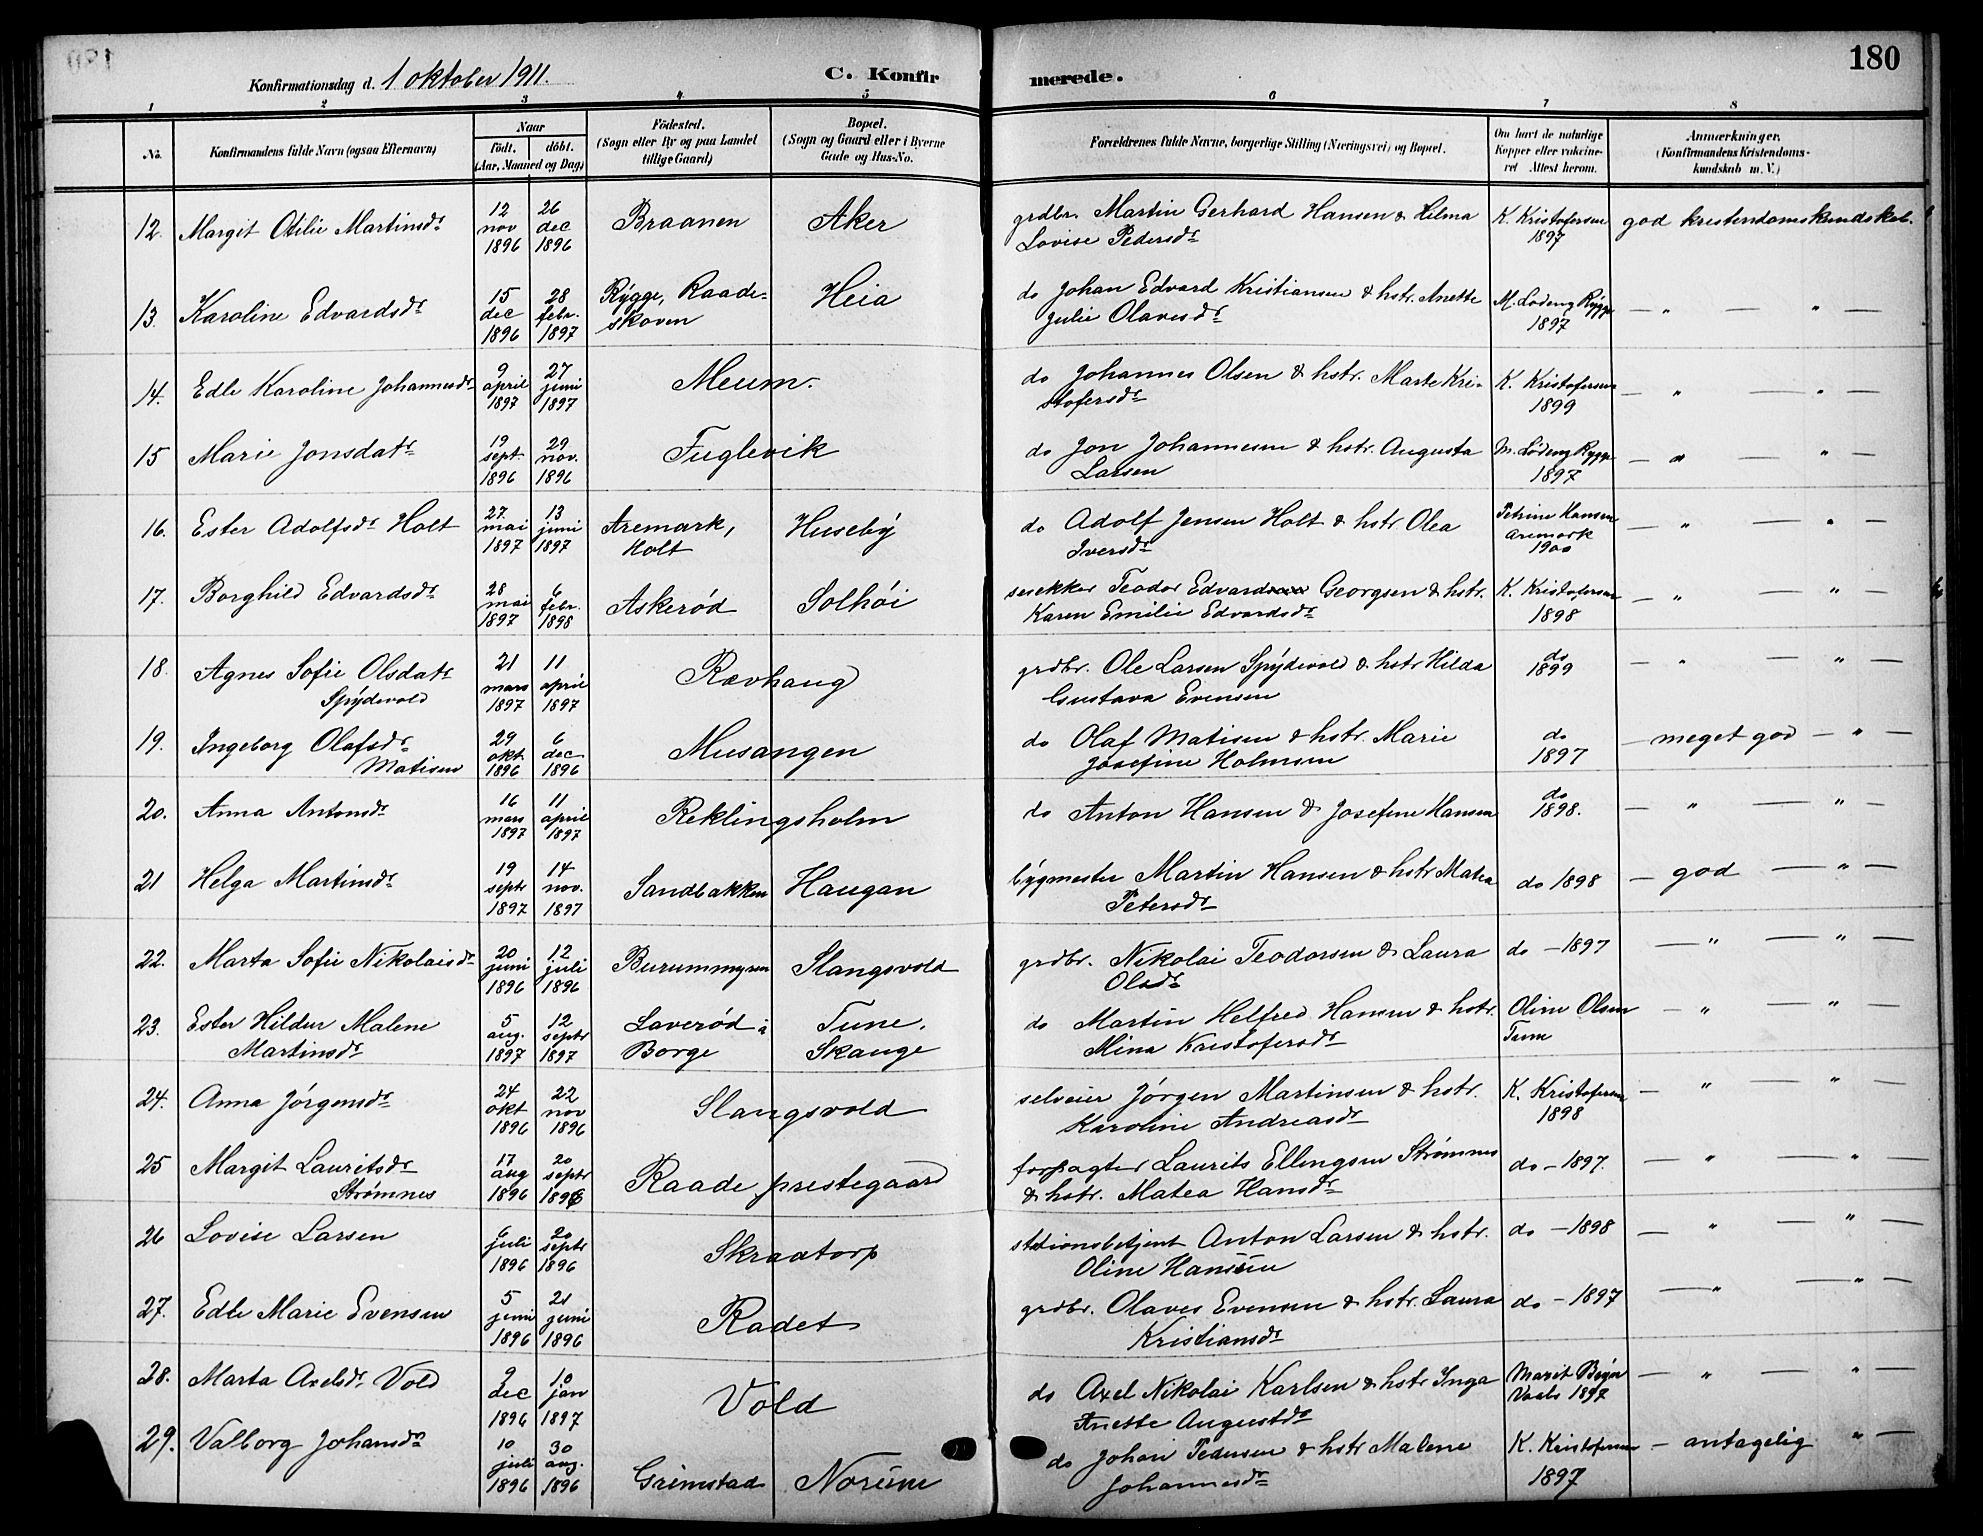 180
Konfirmationsdag d. 1 oktober 1911.
C. Konfirmerede.
1 2 3 4 5 6 7 8
No. Konfirmandens fulde Navn (ogsaa Efternavn) Naar födt. döbt. (Aar, Maaned og Dag) Födested. (Sogn eller By og paa Landet tillige Gaard) Bopæl. (Sogn og Gaard eller i Byerne Gade og Hus-No. Forældrenes fulde Navne, borgerlige Stilling (Næringsvei) og Bopæl. Om havt de naturlige Kopper eller vakcineret Attest herom. Anmærkninger. (Konfirmandens Kristendomskundskab m. V.)
12. Margit Otilie Martinsdr 12 nov 1896 26 dec 1896 Braanen Aker grdbr. Martin Gerhard Hansen & Hilma K. Kristofersen 1897 god kristendomskundskab.
Lovise Pedersdr
13. Karoline Edvardsdr 15 dec 1896 28 febr. 1897 Rygge, Raadeskoven Heia do Johan Edvard Kristiansen & hstr. Anette M. Lodeng Rygge 1897 — " — " —
Julie Olavesdr
14. Edle Karoline Johannesdr 9 april 1897 27 juni 1897 Meum. do Johannes Olsen & hstr. Marte Kri- K. Kristofersen 1899 — " — " —
stofersdr
15 Marie Jonsdatr 19 sept. 1896 29 nov. 1896 Fuglevik do Jon Johannesen & hstr. Augusta M. Lödeng Rygge 1897 — " — " —
Larsen
16. Ester Adolfsdr Holt 27. mai 1897 13 juni 1897 Aremark, Holt Huseby do Adolf Jensen Holt & hstr. Olea Petrine Hansen Aremark 1900 — " — " —
Iversdr
17. Borghild Edvardsdr 28 mai 1897 6 febr. 1898 Askerød Solhöi Teodor Edvard Georgsen & hstr. K. Kristofersen 1898 — " — " —
Karen Emilie Edvardsdr
18. Agnes Sofie Olsdatr 21 mars 1897 11 april 1897 Rævhaug grdbr. Ole Larsen Spydevold & hstr Hilda do 1899 — " — " —
Spydevold Gustava Evensen
19. Ingeborg Olafsdr 29 okt 1896 6 dec 1896 Musangen do Olaf Matisen & hstr. Marie do 1897 — meget god — " —
Matisen Josefine Holmsen
20. Anna Antonsdr 16 mars 1897 11 april 1897 Reklingsholm do Anton Hansen & Josefine Hansen do 1898. — " — " —
21 Helga Martinsdr 19 septr 1897 14 nov. 1897 Sandbakken Haugan bygmester Martin Hansen & hstr Matea do 1898 — god — " —
Petersdr
22. Marta Sofie Nikolaisdr 20 juni 1896 12 juli 1896 Burummyren Slangsvold grdbr. Nikolai Teodorsen & Laura do - 1897 — " — " —
Olsdr
23. Ester Hildur Malene 5 aug. 1897 12 septr 1897 Laverød i Tune, do Martin Helfred Hansen & hstr. Oline Olsen — " — " —
Martinsdr Borge Skauge Mina Kristofersdr Tune
24. Anna Jörgensdr 24 okt 1896 22 nov 1896 Slangsvold selveier Jörgen Martinsen & hstr. K. Kristofersen 1898 — " — " —
Karoline Andreasdr
25 Margit Lauritsdr 17 aug 1896 20 septr 1896 Raade prestegaard forpagter Laurits Ellingsen Strømnes do - 1897. — " — " —
Strømnes & hstr. Matea Hansdr
26 Lovise Larsen 6 juli 1896 20 septr 1896 Skraatorp stationsbetjent Anton Larsen & hstr. do - 1898 — " — " —
Oline Hansen
27. Edle Marie Evensen 5 juni 1896 21 juni 1896 Radet grdbr. Olaves Evensen & hstr. Laura do - 1897 — " — " —
Kristiansdr
28. Marta Axelsdr. Vold 9 dec 1896 10 jan 1897 Vold do Axel Nikolai Karlsen & hstr Inga Marit 1897 — " — " —
Anette Augustdr
29. Valborg Johansdr 10 juli 1896 30 aug. 1896 Grimstad Norum do Johan Pedersen & hstr Malene K. Kristofersen 1897 — antagelig " —
Johannesdr